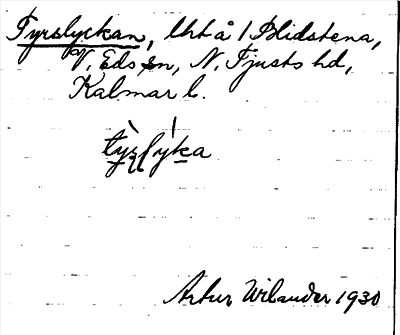 Tyrslyckan, Urt å 1 Blidstena,
V. Eds sn, N. Tjusts hd,
Kalmar l.
Artur Wilander 1930